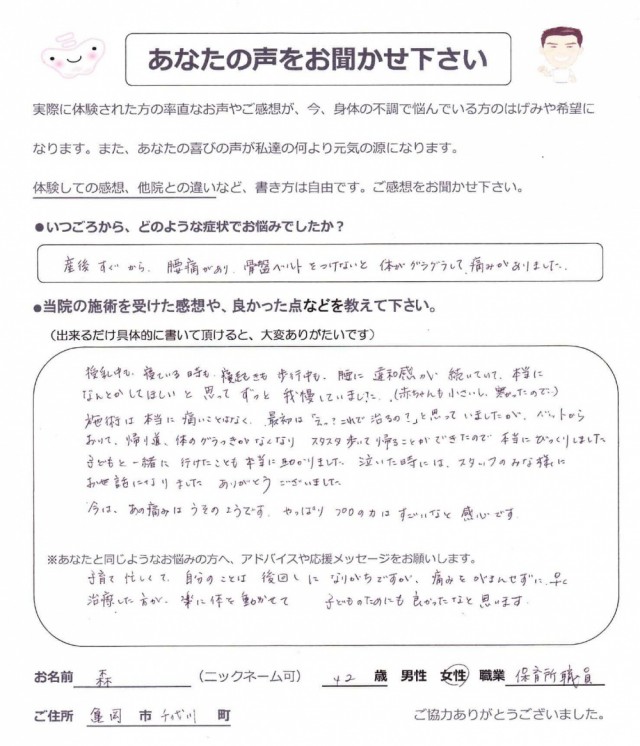 あなたの声をお聞かせ下さい
実際に体験された方の率直なお声やご感想が、今、身体の不調で悩んでいる方のはげみや希望に
なります。また、あなたの喜びの声が私達の何より元気の源になります。
体験しての感想、他院との違いなど、書き方は自由です。ご感想をお聞かせ下さい。
●いつごろから、どのような症状でお悩みでしたか？
産後すぐから、腰痛があり、骨盤ベルトをつけないと体がグラグラして、痛みがありました。
●当院の施術を受けた感想や、良かった点などを教えて下さい。
（出来るだけ具体的に書いて頂けると、大変ありがたいです）
授乳中も、寝ている時も、寝起きも歩行中も、腰に違和感が続いていて、本当に
なんとかしてほしいと思って ずっと我慢していました。（赤ちゃんも小さいし、寒かったので。）
施術は本当に痛いことはなく、最初は「えっ？これで治るの？」と思っていましたが、ベットから
おりて、帰り道、体のグラつきがなくなり スタスタ歩いて帰ることができたので本当にびっくりしました
子どもと一緒に行けたことも本当に助かりました 泣いた時には、スタッフのみな様に
お世話になりました ありがとうございました
今は、あの痛みはうそのようです。やっぱりプロの力はすごいなと感心です
※あなたと同じようなお悩みの方へ、アドバイスや応援メッセージをお願いします。
子育て忙しくて、自分のことは後回しになりがちですが、痛みをがまんせずに、早く
治療した方が、楽に体を動かせて 子どものためにも良かったなと思います
お名前 森 （ニックネーム可） 42 歳 男性 女性 職業 保育所職員
ご住所 亀岡 市 千代川 町 ご協力ありがとうございました。